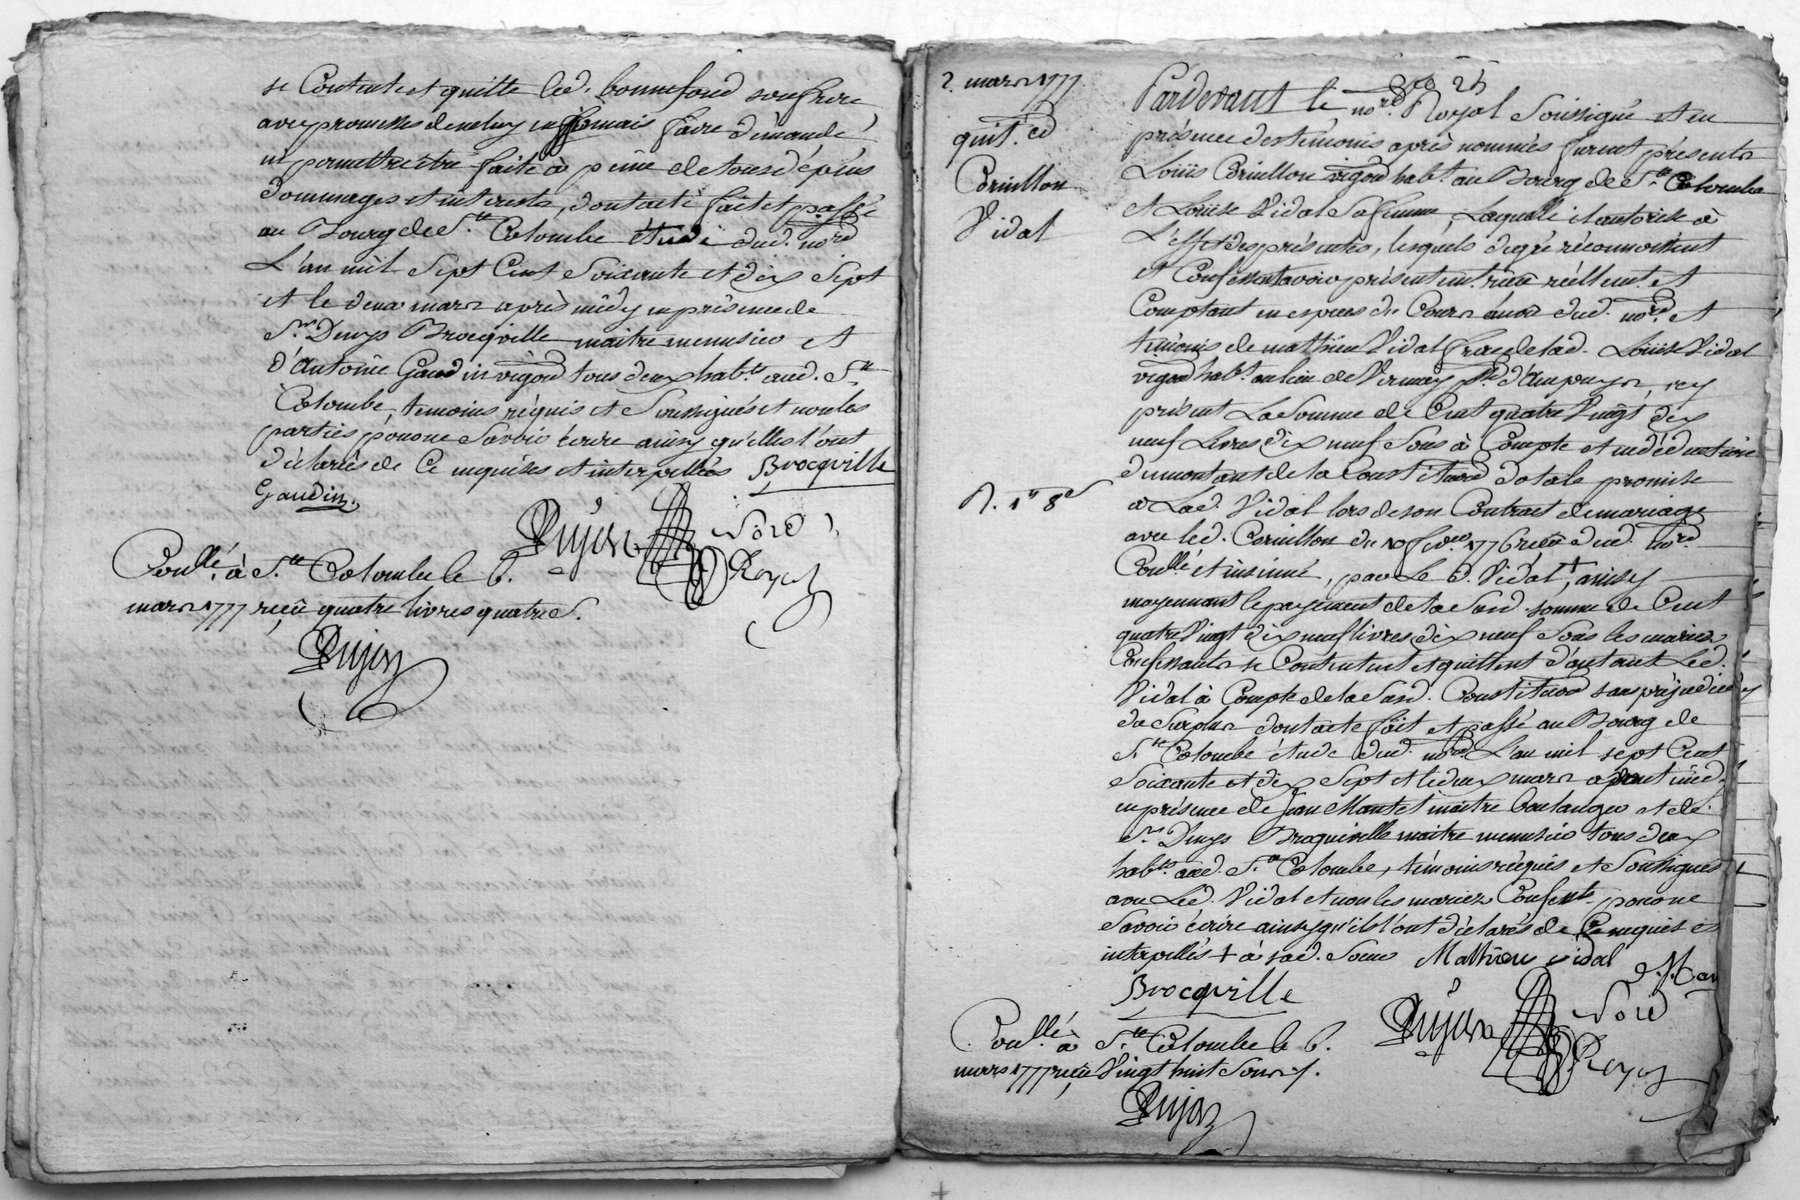 se Contente et quitte led. bonnefond son frere
avec promesse de ne luy en jamais faire demande
ny permettre être faite à peine de tous dépens
dommages et interests, dont acte fait et passé
au Bourg de Ste Colombe étude dud. nore
L'an mil sept Cent Soixante et dix sept
et le deux mars après midy en présence de
Sr Denys Brocqville maitre menusier et
d'Antoine Gaudin vigon tous deux habts aud. Ste
Colombe, temoins réquis et Soussignés et non les
parties pour ne Savoir écrire ainsy qu'elles l'ont
déclarés de Ce enquises et interpellées Brocqville
Gaudin
Pujon Nore
Royal
Conllé à Ste Colombe le 6.
mars 1777 reçû quatre livres quatre s.
Pujon
2. mars 1777
quit.ce
Corinllon
Vidal
R. 1# 8d
Pardevant le nore Royal Soussigné et en
présence des témoins après nommés furent présents
Louis Corinllon vigon habt au Bourg de Ste Colombe
et Louise Vidal Sa femme, Laquelle il autorise à
L'effet des présentes, lesquels de gré réconnoissent
et Confessent avoir présentemt reçû réellemt et
Comptant en espèces de Cours à vüe dud. nore et
témoins de mathieu Vidal frere de lad. Louise Vidal
vigon habt au lieu de Vernay psse d'Ampuys, icy
présent La Somme de Cent quatre Vingt dix
neuf Livres dix neuf Sous à Compte et en déduction
du montant de la Constitution dotale promise
à Lad. Vidal lors de son Contrat de mariage
avec led. Corinllon du 10 fevrer 1776 reçû dud. nore
Conllé et insinué, par Le d. Vidal +, ainsy
moyennant le payement de la Susd. somme de Cent
quatre Vingt dix neuf livres dix neuf Sous les mariés
Confessants se Contentent et quittent d'autant Led.
Vidal à Compte de la Susd. Constitution sans préjudice
du Surplus dont acte fait et passé au Bourg de
Ste Colombe étude dud. nore L'an mil sept Cent
Soixante et dix Sept et le deux mars avant midy
en présence de Jean Mantet maitre boulanger et de
Sr Denys Brocquville maitre menusier tous deux
habts aud. Ste Colombe, témoins réquis et Soussignés
avec Led. Vidal et non les mariez Confests pour ne
Savoir écrire ainsy qu'ils l'ont déclarés de Ce enquis et
interpellés + à sad. Soeur Mathieu vidal
Brocqville
Pujon Nore
Royal
Conllé à Ste Colombe le 6.
mars 1777 reçû Vingt huit Sous
Pujon